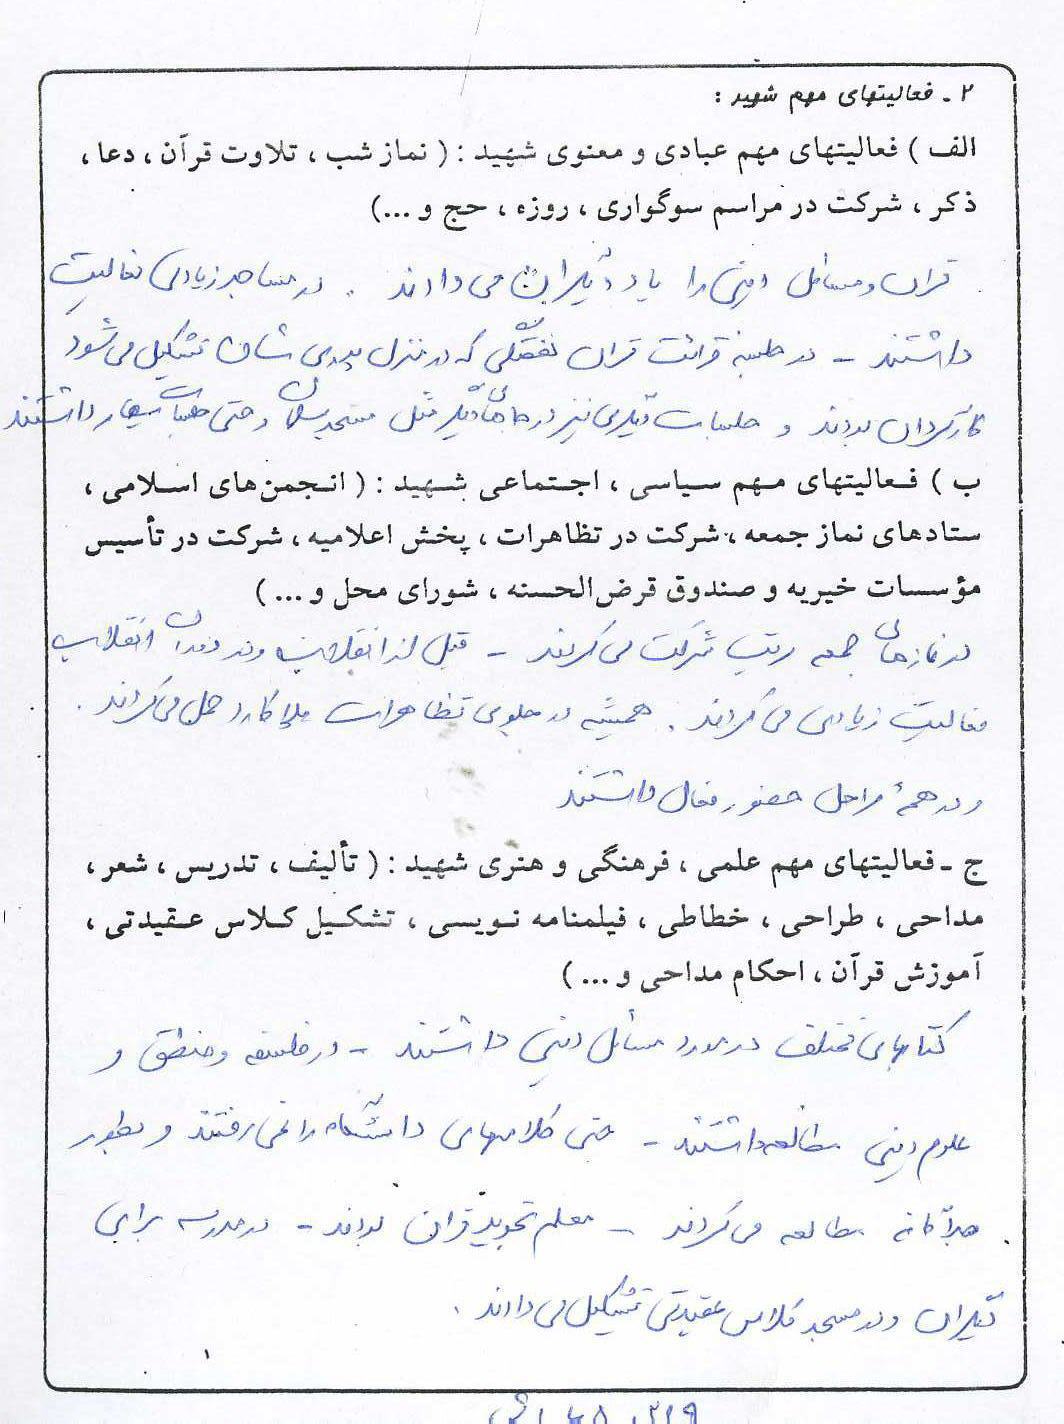 ۲ ـ فعالیتهای مهم شهید :
الف ) فعالیتهای مهم عبادی و معنوی شهید : ( نماز شب ، تلاوت قرآن ، دعا ،
ذکر ، شرکت در مراسم سوگواری ، روزه ، حج و ...)
قران و مسائل دینی را یاد دیگران می دادند . در مساجد زیادی فعالیت
داشتند - در جلسه قرائت قران هفتگی که در منزل پدری شان تشکیل می شود
کارگردان بودند و جلسات دیگری نیز در جاهای دیگر مثل مسجد و حتی داشتند
ب ) فعالیتهای مهم سیاسی ، اجتماعی شهید : ( انجمن‌های اسلامی ،
ستادهای نماز جمعه ، شرکت در تظاهرات ، پخش اعلامیه ، شرکت در تأسیس
مؤسسات خیریه و صندوق قرض‌الحسنه ، شورای محل و ... )
در نمازهای جمعه مرتب شرکت می کردند - قبل از انقلاب و در دوران انقلاب
فعالیت زیادی می کردند . همیشه در جلوی تظاهرات پلاکارد حمل می کردند .
و در همهٔ مراحل حضور فعال داشتند
ج ـ فعالیتهای مهم علمی ، فرهنگی و هنری شهید : ( تألیف ، تدریس ، شعر ،
مداحی ، طراحی ، خطاطی ، فیلمنامه نویسی ، تشکیل کلاس عقیدتی ،
آموزش قرآن ، احکام مداحی و ... )
کتابهای مختلف در مورد مسائل دینی داشتند - در فلسفه و منطق و
علوم دینی مطالعه داشتند - حتی کلاسهای دانشگاه را نمی رفتند و بطور
جداگانه مطالعه می کردند - معلم تجوید قران بودند - در مدرسه برای
دیگران و در مسجد کلاس عقیدتی تشکیل می دادند .